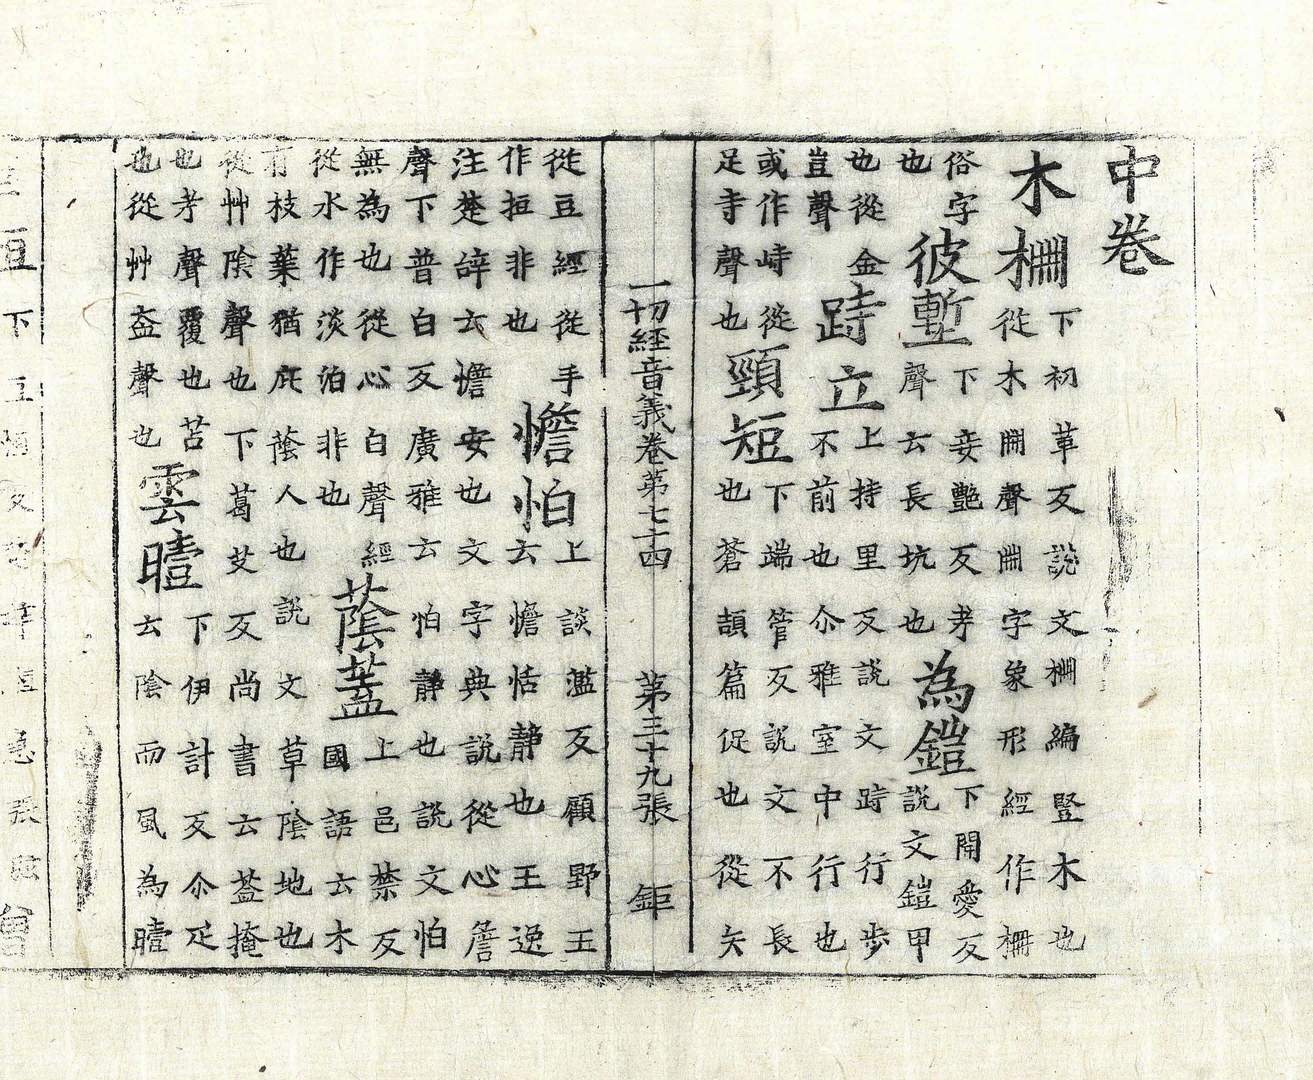 中卷
木柵下初革反說文柵編豎木也從木𠕋聲𠕋字象形經作柵
俗字也彼塹下妾豔反考聲云長坑也為鎧下開愛反說文鎧甲
也從金豈聲跱立上持里反說文跱行步不前也尒雅室中行也
或作峙從足寺聲也頸短下端管反說文不長也蒼頡篇促也從矢
一切經音義卷第七十四 第三十九張 鉅
從豆經從手作拒非也憺怕上談濫反顧野王云憺恬靜也王逸
注楚辭云憺安也文字典說從心詹聲下普白反廣雅云怕靜也說文怕
無為也從心白聲經從水作淡泊非也蔭蓋上邑禁反國語云木
有枝葉猶庇蔭人也說文草陰地也從艸陰聲也下葛艾反尚書云葢掩
也考聲覆也苫也從艸盍聲也雲曀下伊計反尒疋云陰而風為曀